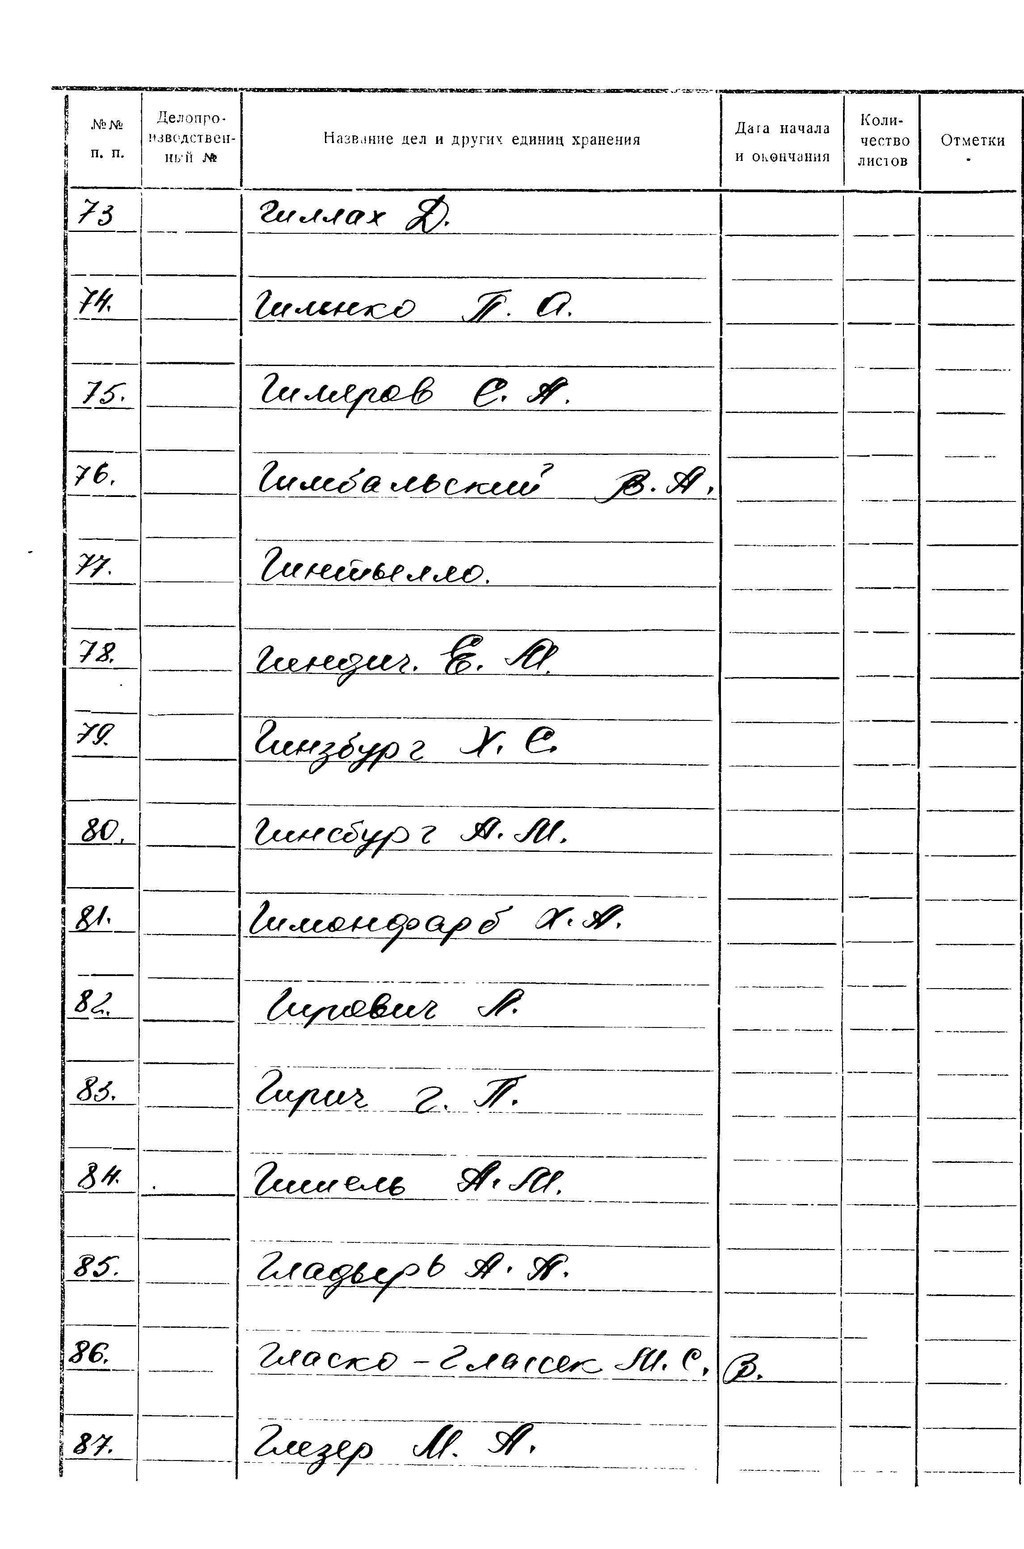 №№ п. п. Делопро-изводствен-ный № Название дел и других единиц хранения Дата начала и окончания Коли-чество листов Отметки
73 Гиллах Д.
74. Гилько П. А.
75. Гиляров С. А.
76. Гимбальский В. А.
77. Гинтылло.
78. Гиндич. Е. М.
79. Гинзбург Х. С.
80. Гинсбург А. М.
81. Гимонфарб Х. А.
82. Гирович Л.
83. Гирич Г. П.
84. Гишель А. М.
85. Гладырь А. А.
86. Гласко - Глассек М. С. В.
87. Глезер М. А.